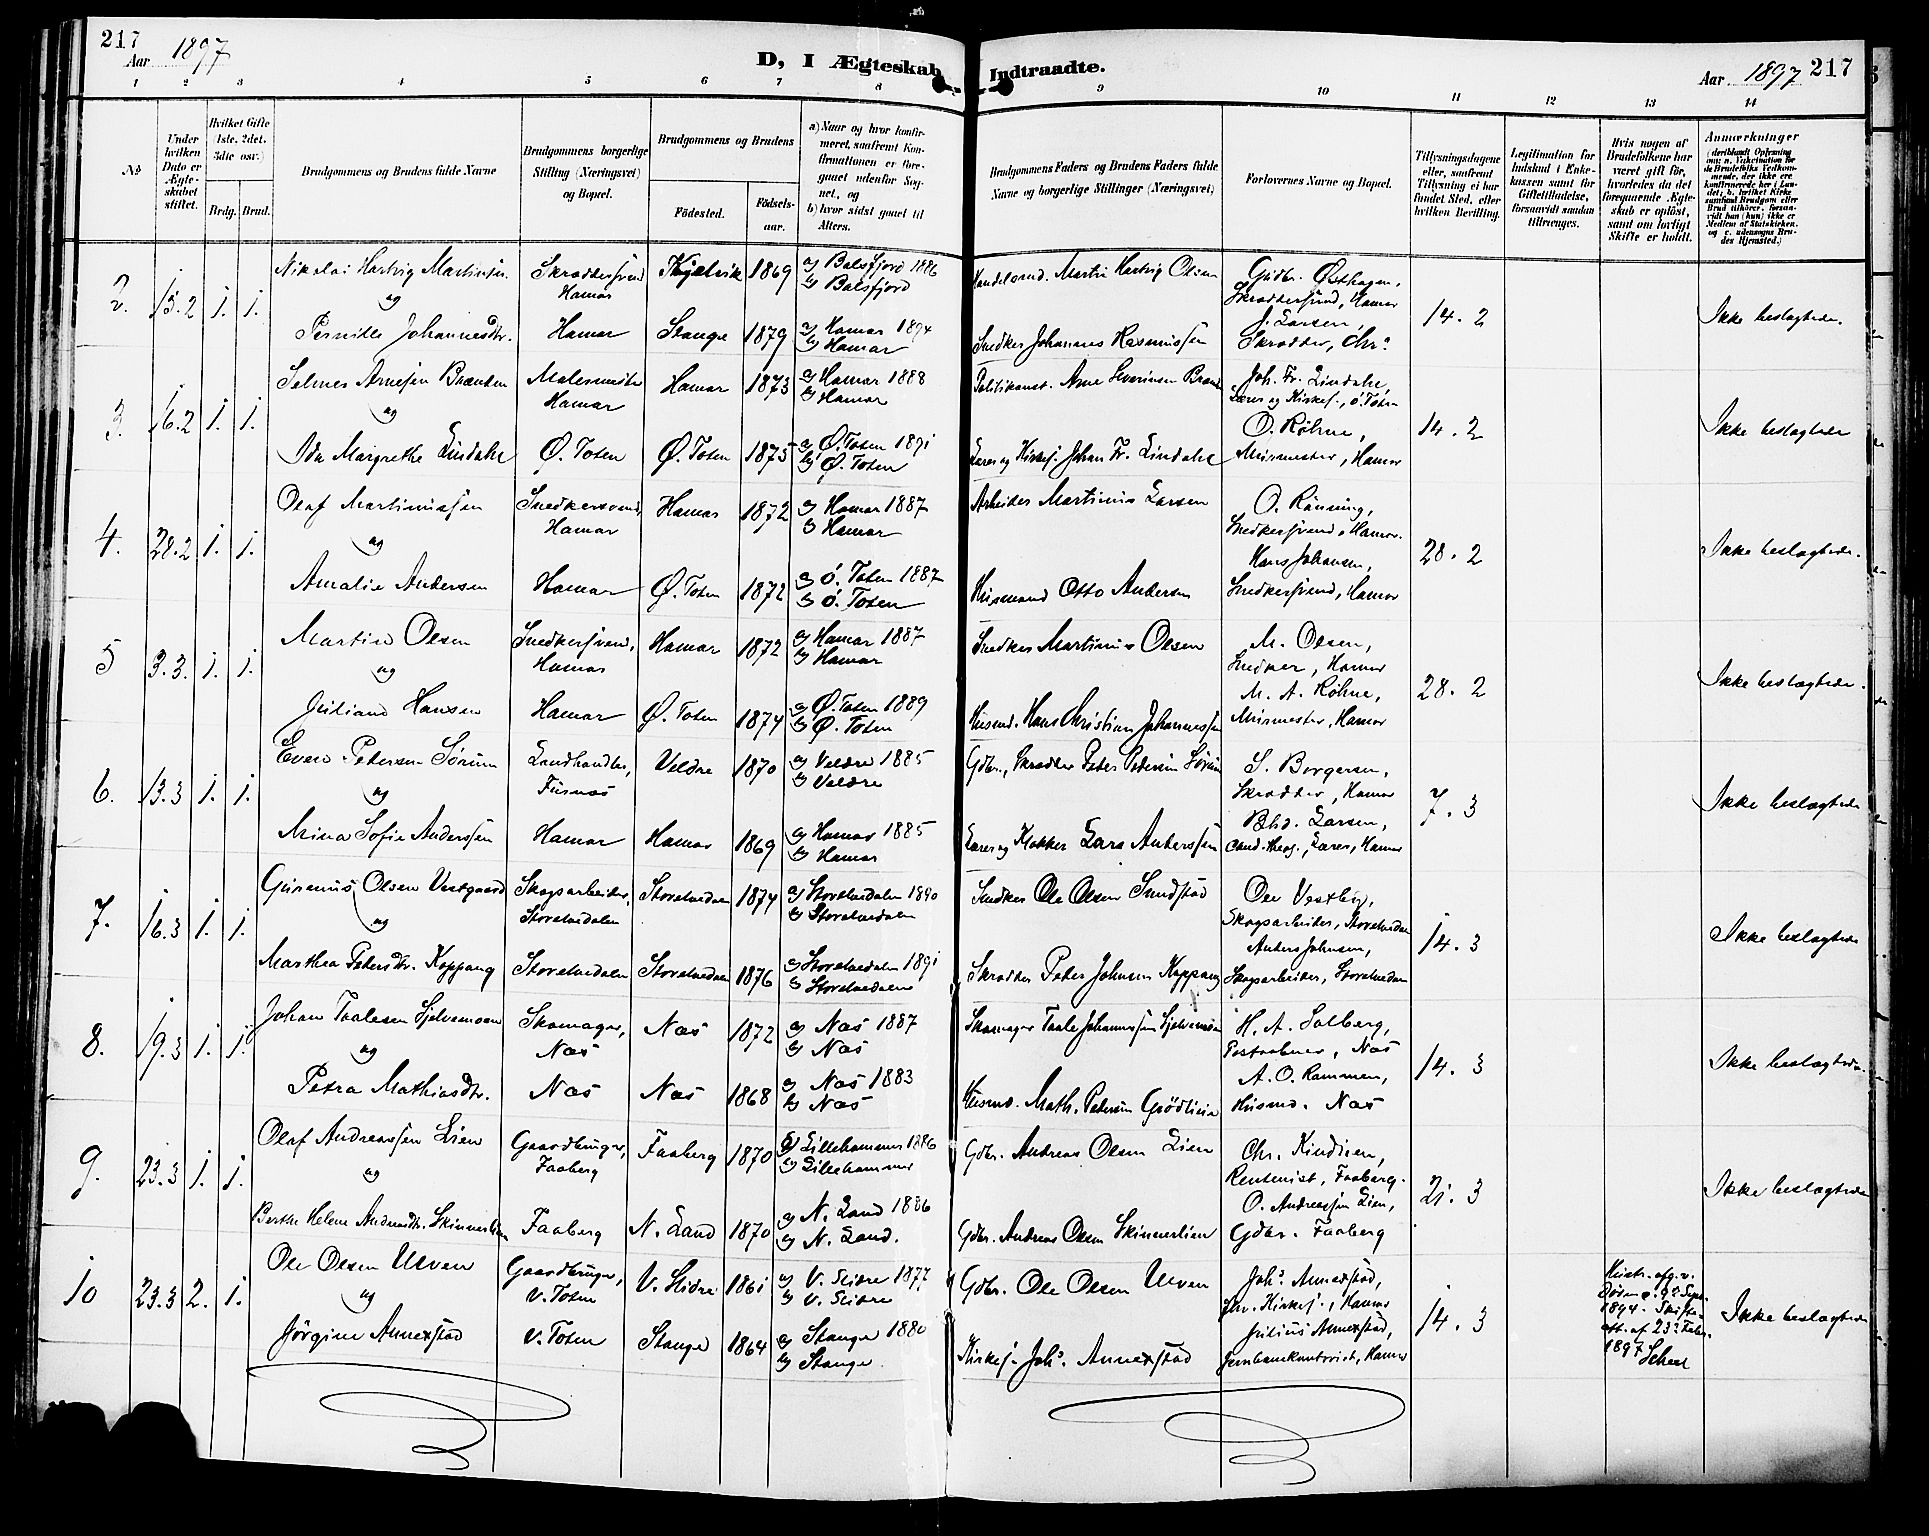 217
Aar 1897
D, I Ægteskab Indtraadte.
Aar 1897 217
1 2 3 4 5 6 7 8 9 10 11 12 13 14
No
Under hvilken Dato er Ægteskabet stiftet.
Hvilket Gifte (1ste, 2det, 3die osv.)
Brdg. Brud.
Brudgommens og Brudens fulde Navne
Brudgommens borgerlige Stilling (Næringsvei) og Bopæl.
Brudgommens og Brudens
Fødested.
Fødselsaar.
a) Naar og hvor konfirmeret, saafremt Konfirmationen er foregaaet udenfor Sognet, og
b) hvor sidst gaaet til Alters.
Brudgommens Faders og Brudens Faders fulde Navne og borgerlige Stillinger (Næringsvei)
Forlovernes Navne og Bopæl.
Tillysningsdagene eller, saafremt Tillysning ei har fundet Sted, efter hvilken Bevilling.
Legitimation for Indskud i Enkekassen samt for Giftetilladelse, forsaavidt saadan tiltrænges.
Hvis nogen af Brudefolkene har været gift før, hvorledes da det foregaaende Ægteskab er opløst, samt om lovligt Skifte er holdt.
Anmærkninger
2. 13.2 1. 1.
Nikolai Hartvig Martinsen
og
Pernille Johannesdtr.
Skrædersvend Hamar
Hamar
Kjelvik 1869
Stange 1879
a) Balsfjord 1886
b) Balsfjord
a) Hamar 1894
b) Hamar
Handelsmd. Martin Hartvig Olsen
Snedker Johannes Rasmussen
Gudbr. Østhagen,
Skræddersvend, Hamar
J. Larsen,
Skrædder, Chr.a
14. 2
Ikke beslægtede.
3. 16.2 1. 1.
Selmer Arnesen Brænden
og
Ida Margrethe Lindahl
Malermester Hamar
Ø. Toten
Hamar 1873
Ø. Toten 1875
a) Hamar 1888
b) Hamar
a) Ø. Toten 1891
b) Ø. Toten
Politikonst. Arne Severinsen Brænd
Lærer og Kirkes. Johan Fr. Lindahl
Joh. Fr. Lindahl,
Lærer og Kirkes., Ø. Toten
O. Røhne,
Murmester, Hamar
14. 2
Ikke beslægtede
4. 28.2 1. 1.
Olaf Martinussen
og
Amalie Andersen
Snedkersvend, Hamar
Hamar
Hamar 1872
Ø. Toten 1872
a) Hamar 1887
b) Hamar
a) Ø. Toten 1887
b) Ø. Toten
Arbeider Martinus Larsen
Husmand Otto Andersen
O. Rønning,
Snedkersvend, Hamar.
Hans Johansen,
Snedkersvend, Hamar
28. 2
Ikke beslægtede.
5 3.3. 1. 1.
Martin Olsen
og
Juliane Hansen
Snedkersvend, Hamar
Hamar
Hamar 1872
Ø. Toten 1874
a) Hamar 1887
b) Hamar
a) Ø. Toten 1889
b) Ø. Toten
Snedker Martinus Olsen
Husmd. Hans Christian Johannessen
M. Olsen,
Snedker, Hamar
M. A. Røhne,
Murmester, Hamar
28. 2
Ikke beslægtede.
6. 13.3 1. 1.
Even Petersen Sørum
og
Mina Sofie Anderssen
Landhandler, Furnæs
Hamar
Veldre 1870
Hamar 1869
a) Veldre 1885
b) Veldre
a) Hamar 1885
b) Hamar
Gdbr., Skrædder Peter Pedersen Sørum
Lærer og Klokker Lars Anderssen
S. Borgersen,
Skrædder, Hamar
Larsen,
Cand. theol., Lærer, Hamar
7. 3
Ikke beslægtede
7. 16.3 1. 1.
Gunerius Olsen Vestgaard
og
Marthea Petersdtr. Koppang
Skogsarbeider, Storelvedalen
Storelvedalen
Storelvedalen 1874
Storelvedalen 1876
a) Storelvedalen 1890
b) Storelvedalen
a) Storelvedalen 1891
b) Storelvedalen
Snedker Ole Olsen Sundstad
Skrædder Peter Johnsen Koppang
Ole Vestby,
Skogsarbeider, Storelvedalen
Anders Johnsen,
Skogsarbeider, Storelvedalen
14. 3
Ikke beslægtede
8. 19.3 1. 1.
Johan Taalesen Sjelvemoen
og
Petra Mathiasdtr.
Skomager, Næs
Næs
Næs 1872
Næs 1868
a) Næs 1887
b) Næs
a) Næs 1883
b) Næs
Skomager Taale Johannessen Sjelvemoen
Husmd. Math. Petersen Grødlien
H. A. Solberg,
Postaabner, Næs
A. O. Rammen,
Husmd. Næs
14. 3
Ikke beslægtede.
9. 23.3 1. 1.
Olaf Andreassen Lien
og
Berthe Helene Andreasdtr. Skinnerlien
Gaardbruger, Faaberg
Faaberg
Faaberg 1870
N. Land 1870
a) Lillehammer 1886
b) Lillehammer
a) N. Land 1886
b) N. Land.
Gdbr. Andreas Olsen Lien
Gdbr. Andreas Olsen Skinnerlien
Chr. Kindlien,
Rentenist, Faaberg.
O. Andreassen Lien,
Gdbr. Faaberg
21. 3
Ikke beslægtede
10 23.3 2. 1.
Ole Olsen Ulven
og
Jørgine Annexstad
Gaardbruger, V. Toten
V. Toten
V. Slidre 1861
Stange 1864
a) V. Slidre 1877
b) V. Slidre
a) Stange 1880
b) Stange
Gdbr. Ole Olsen Ulven
Kirkes. Johs. Annexstad
Johs. Annexstad,
Kirkes., Hamar
Julius Annexstad,
Jernbanekontorist, Hamar
14. 3
Hustr. afg. v. Døden 9de Sept. 1894. Skifteatt. af 23de Febr. 1897
Ikke beslægtede